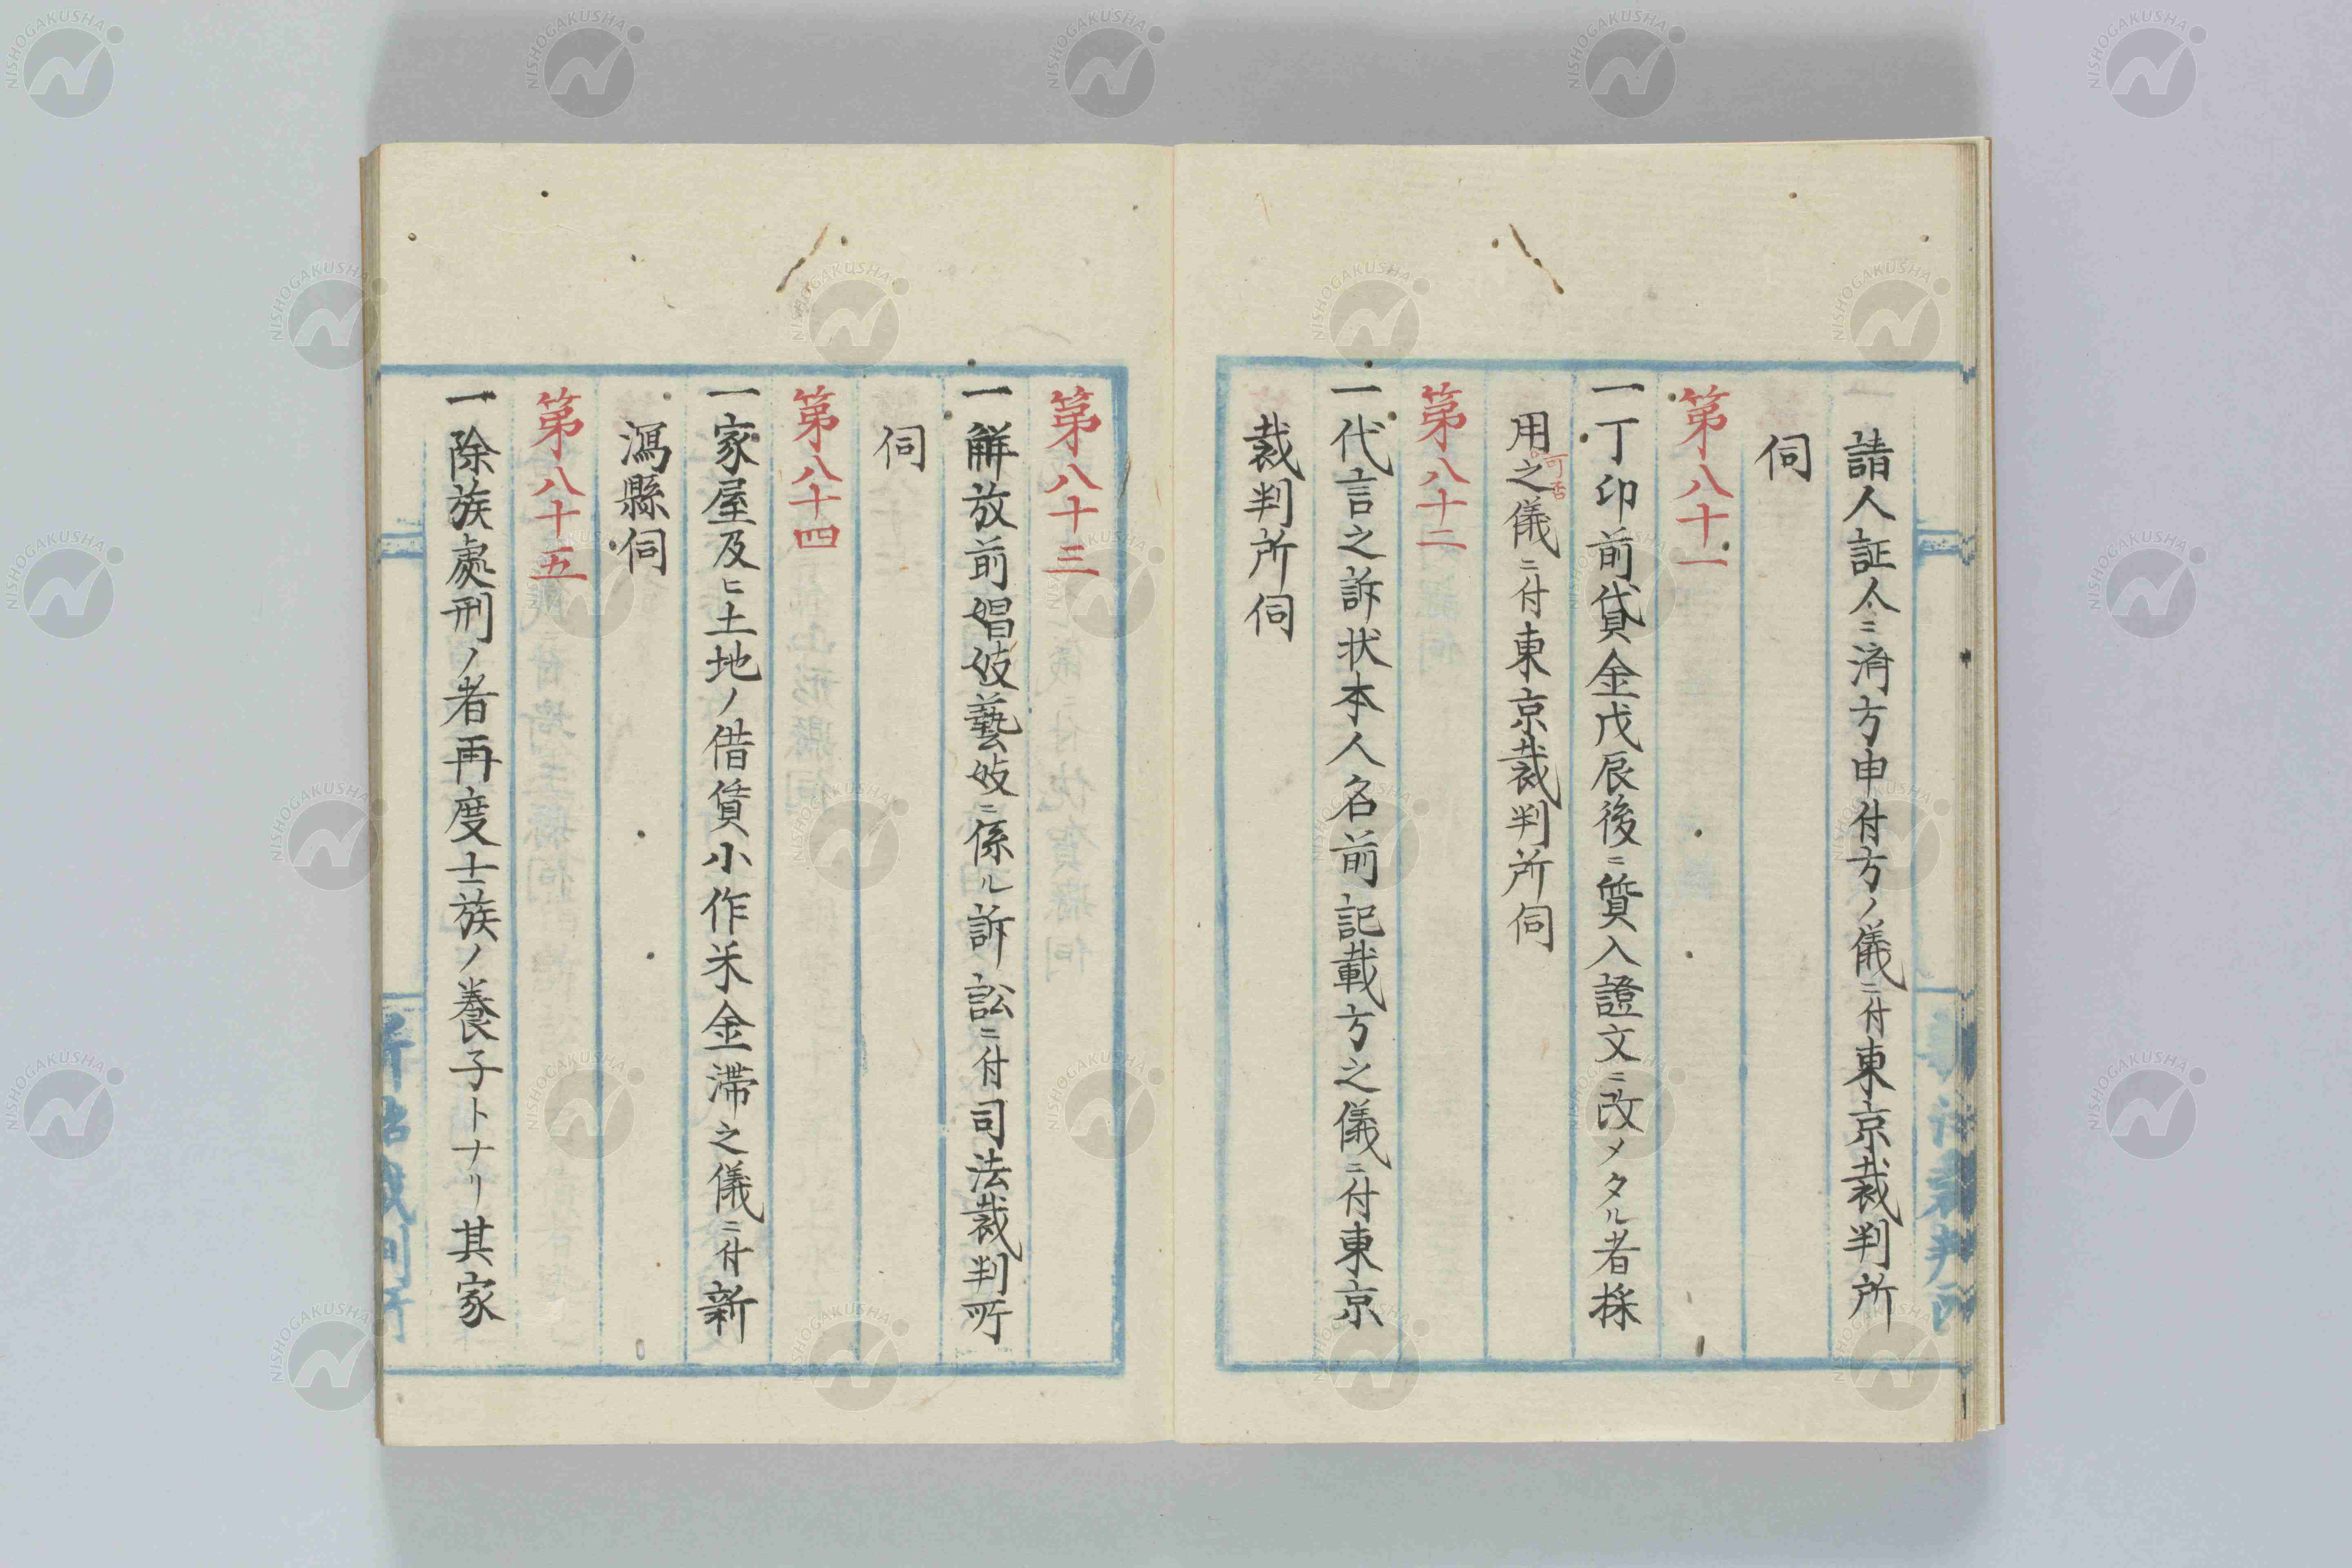 請人証人ニ済方申付方ノ儀ニ付東京裁判所
伺
第八十一
一丁印前貸金戊辰後ニ質入證文ニ改メタル者採
用之儀ニ付東京裁判所伺
可否
第八十二
一代言之訴状本人名前記載方之儀ニ付東京
裁判所伺
第八十三
一解放前娼妓藝妓ニ係ル訴訟ニ付司法裁判所
伺
第八十四
一家屋及ヒ土地ノ借賃小作米金滞之儀ニ付新
潟縣伺
第八十五
一除族處刑ノ者再度士族ノ養子トナリ其家
NISHOGAKUSHA